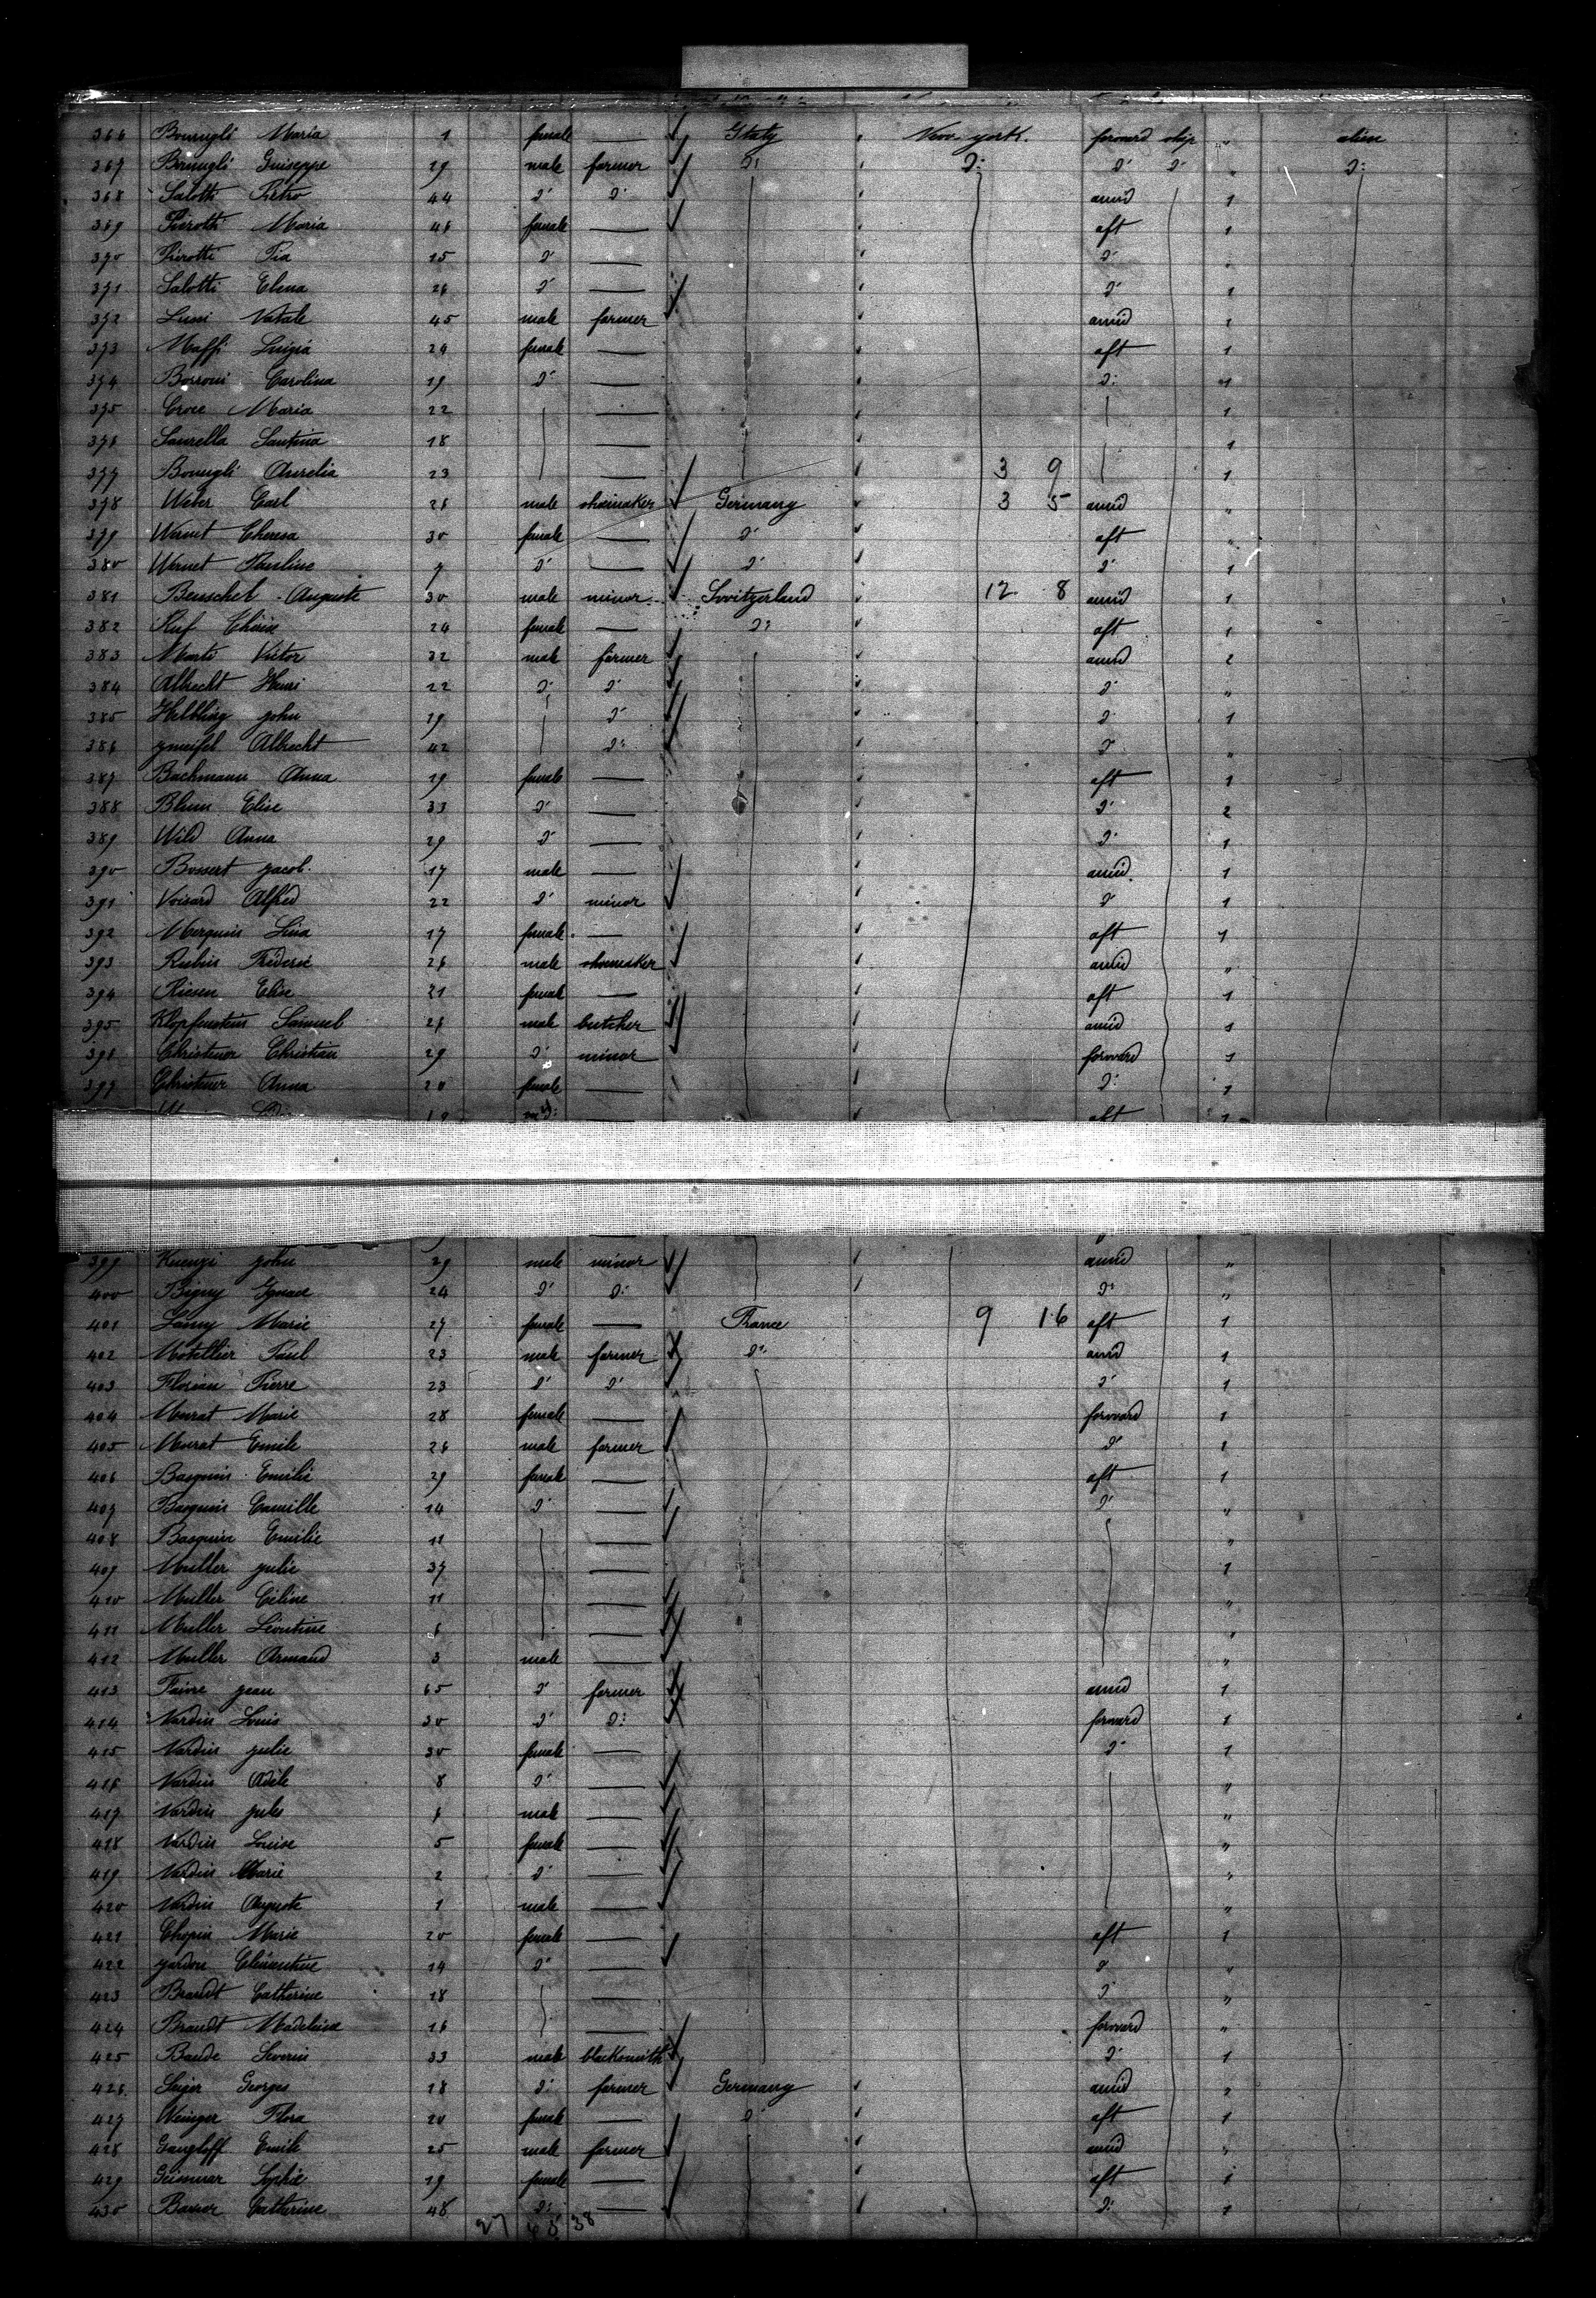 366 Bonugli Maria 1 female — Italy New-york. forward ship " alien
367 Bonugli Guiseppe 29 male farmer d: d: d: d: " d:
368 Salotti Pietro 44 d: d: amid 1
369 Pierotti Maria 46 female — aft 1
370 Pierotti Pia 15 d: — d: "
371 Salotti Elena 26 d: — d: 1
372 Luni Natale 45 male farmer amid 1
373 Maffi Luigia 24 female — aft 1
374 Borroni Carolina 19 d: — d: 1
375 Croce Maria 22 — 1
376 Santina 18 — 1
377 Bonugli Aurelia 23 — 3 9 1
378 Weber Carl 26 male shoemaker Germany 3 5 amid "
379 Wernet Theresa 30 female — d: aft "
380 Wernet Pauline 7 d: — d: d: 1
381 Auguste 30 male minor Switzerland 12 8 amid 1
382 Ruf 24 female — d: aft 1
383 Marti Victor 32 male farmer amid 2
384 Albrecht Henri 22 d: d: d: "
385 Helbling john 19 d: d: 1
386 Albrecht 42 d: d: "
387 Bachmann Anna 19 female — aft 1
388 Blum Elise 33 d: — d: 2
389 Wild Anna 29 d: — d: 1
390 Bossert jacob. 17 male — amid. 1
391 Voisard Alfred 22 d: minor d: 1
392 Lina 17 female — aft 1
393 Rubin Fréderic 26 male shoemaker amid "
394 Riesen Elise 21 female — aft 1
395 Klopfenstein Samuel 26 male butcher amid 1
396 Christener Christian 29 d: minor forward 1
397 Christener Anna 20 female — d: 1
aft
399 Kuenzi john 29 male minor amid "
400 Ignace 24 d: d: d: "
401 Marie 27 female — France 9 16 aft 1
402 Paul 23 male farmer d: amid 1
403 Florian Pierre 23 d: d: d: 1
404 Murat Marie 28 female — forward 1
405 Murat Emile 26 male farmer d: 1
406 Basquin Emilie 29 female — aft 1
407 Basquin Camille 14 d: — d: "
408 Basquin Emilie 11 — "
409 Muller julie 37 — 1
410 Muller Céline 11 — "
411 Muller Léontine 6 — "
412 Muller Armand 3 male — "
413 Faivre jean 65 d: farmer amid 1
414 Nardin Louis 30 d: d: forward 1
415 Nardin julie 30 female — d: 1
416 Nardin Adèle 8 d: — "
417 Nardin jules 6 male — "
418 Nardin Louise 5 female — "
419 Nardin Marie 2 d: — "
420 Nardin Auguste 1 male — "
421 Chopin Marie 20 female — aft 1
422 Clémentine 14 d: — d: "
423 Brandt Catherine 18 — d: "
424 Brandt Madeleine 16 — forward "
425 Baude Severin 33 male blacksmith d: 1
426 Georges 18 d: farmer Germany amid 2
427 Flora 20 female — d: aft 1
428 Gangloff Emile 25 male farmer amid "
429 Sophie 19 female — aft 1
430 Catherine 48 d: — d: 1
27 65 38